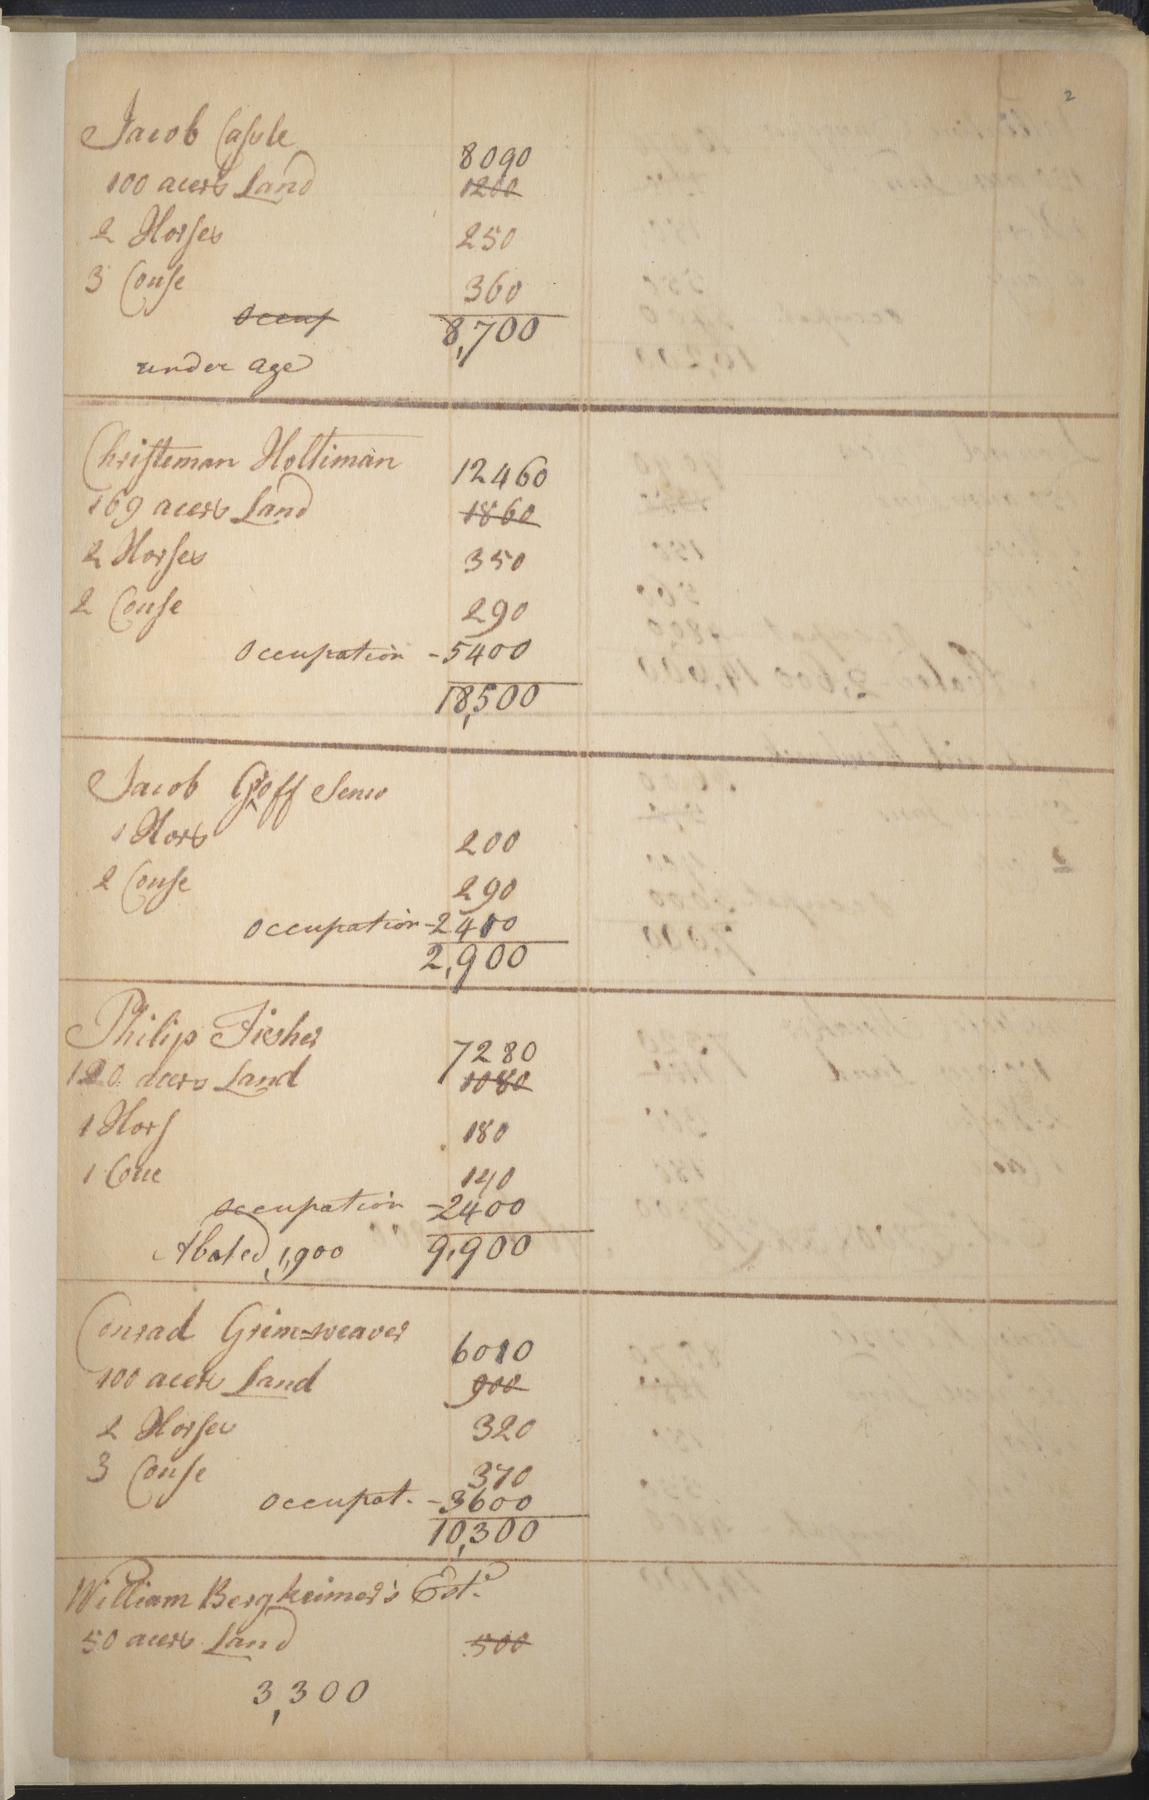 2
Jacob Casole
8090
100 acers Land 1200
2 Horses 250
3 Couse 360
occup
8,700
under age
Christeman Holtiman
12460
169 acers Land 1860
2 Horses 350
2 Couse 290
occupation - 5400
18,500
Jacob Groff Senio
1 Hors 200
2 Couse 290
occupation - 2400
2,900
Philip Fisher
7280
120 acers Land 1080
1 Hors 180
1 Coue 140
occupation - 2400
Abated 1,900 9,900
Conrad Grim=weaver
6010
100 acers Land 900
2 Horses 320
3 Couse 370
occupat. - 3600
10,300
William Bergheimer's Est.
50 acers Land 500
3,300